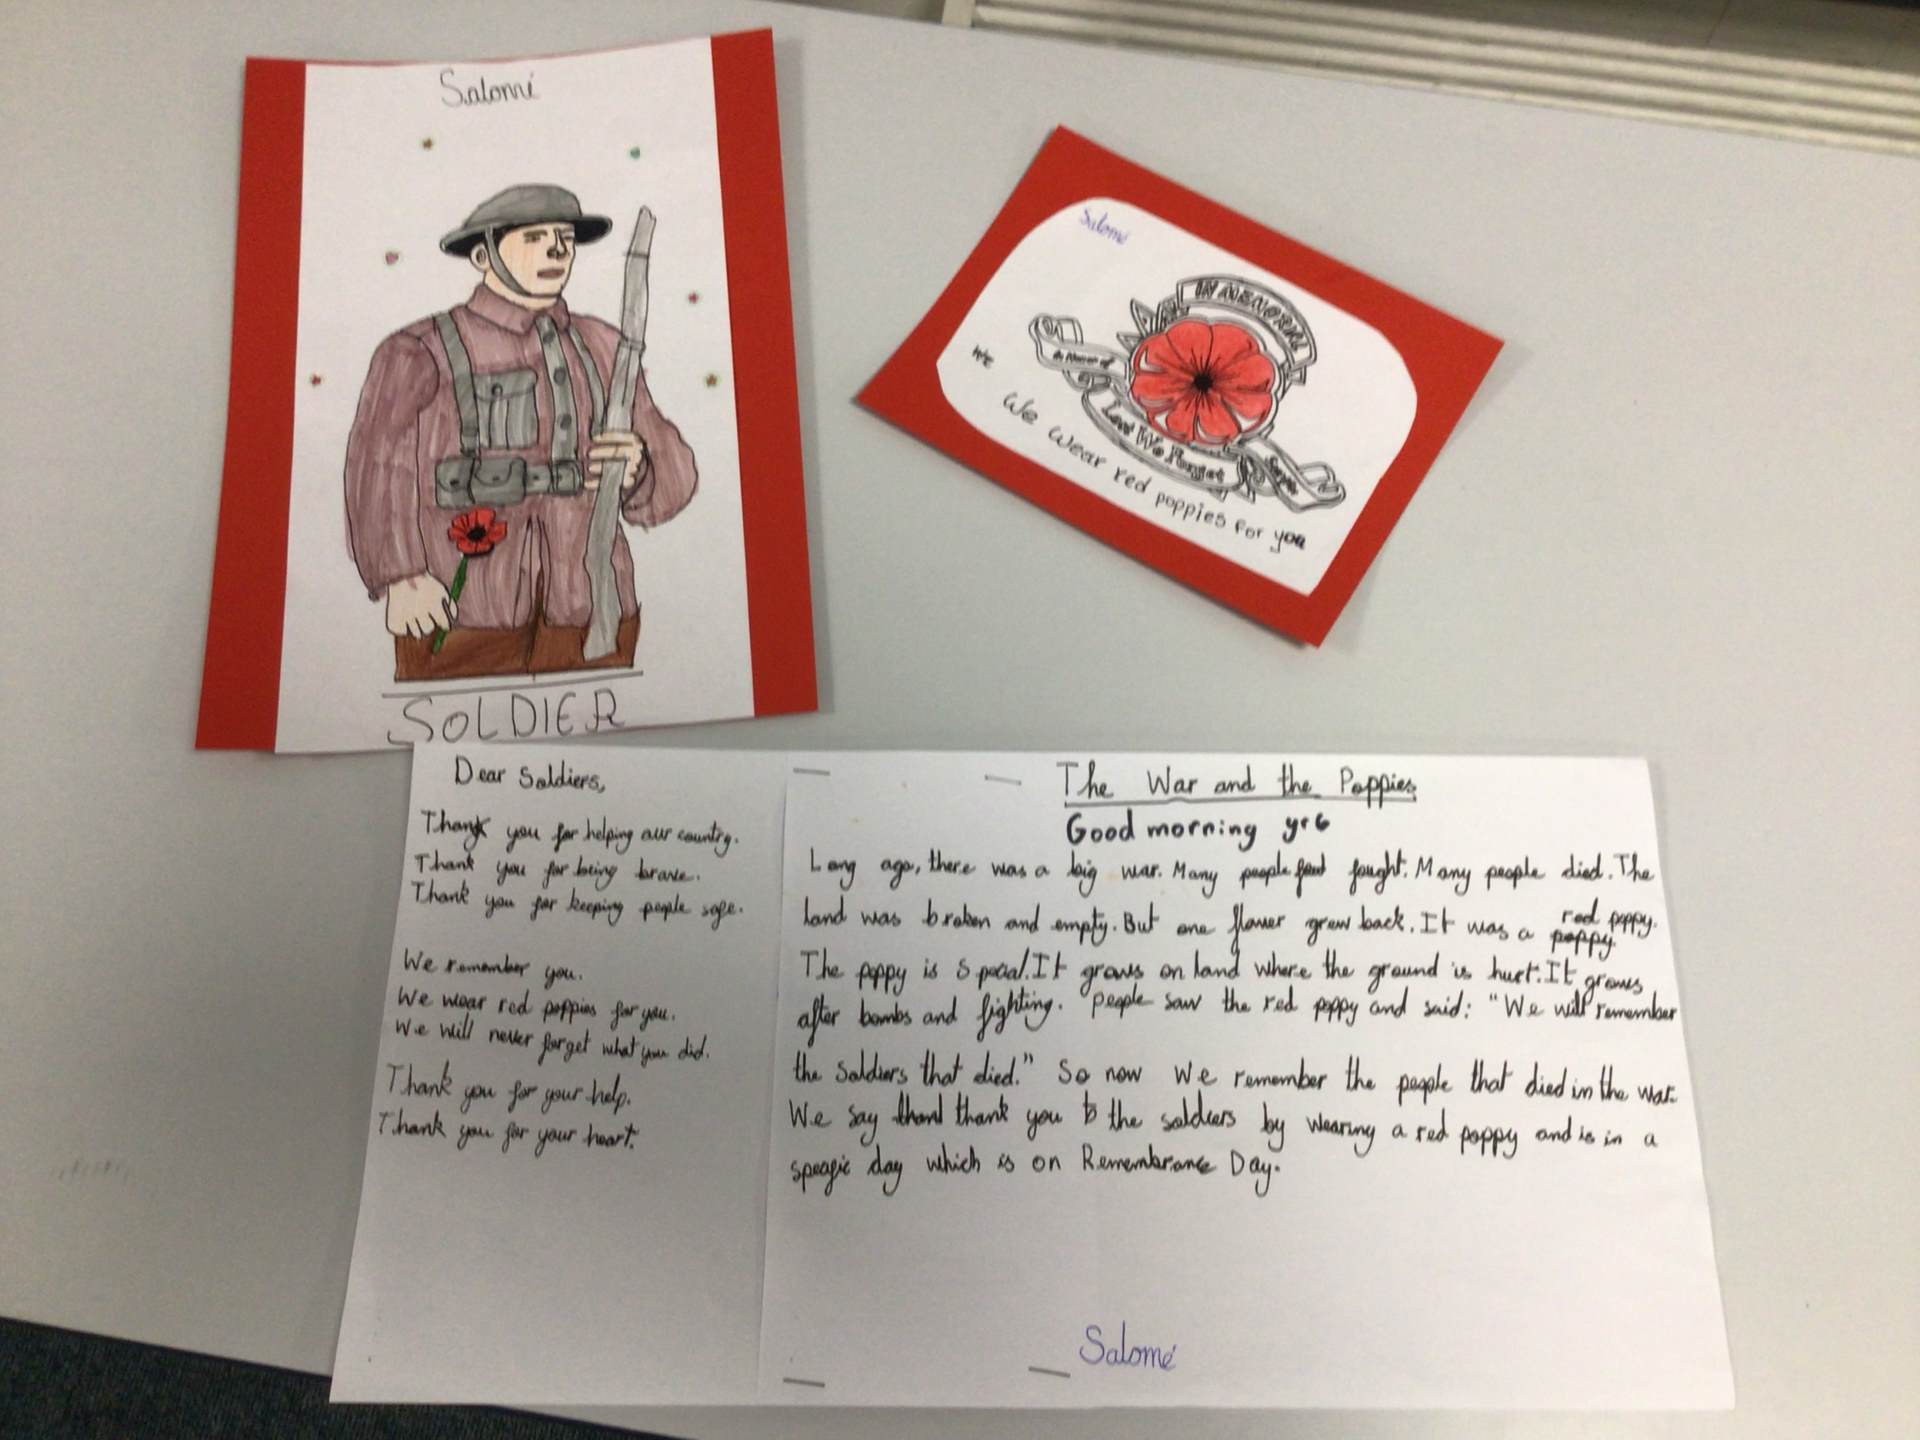 Salomé
SOLDIER
Salomé
IN MEMORIAL
In Honor of
Lest We Forget
We
We wear red poppies for you
Dear Soldiers,
Thank you for helping our country.
Thank you for being brave.
Thank you for keeping people safe.
We remember you.
We wear red poppies for you.
We will never forget what you did.
Thank you for your help.
Thank you for your heart.
The War and the Poppies
Good morning yr6
Long ago, there was a big war. Many people fought. Many people died. The
land was broken and empty. But one flower grew back. It was a red poppy.
The poppy is special. It grows on land where the ground is hurt. It grows
after bombs and fighting. people saw the red poppy and said: "We will remember
the soldiers that died." So now We remember the people that died in the war.
We say thank you to the soldiers by wearing a red poppy and is in a
spesific day which is on Remembrance Day.
Salomé